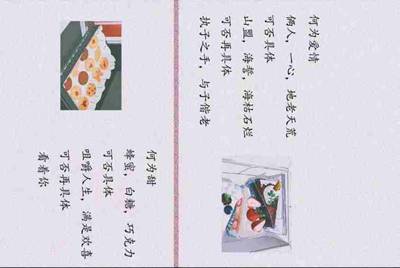 何为爱情
俩人,一心,地老天荒
可否具体
山盟,海誓,海枯石烂
可否再具体
执子之手,与子偕老
何为甜
蜂蜜,白糖,巧克力
可否具体
咀嚼人生,满是欢喜
可否再具体
看看你